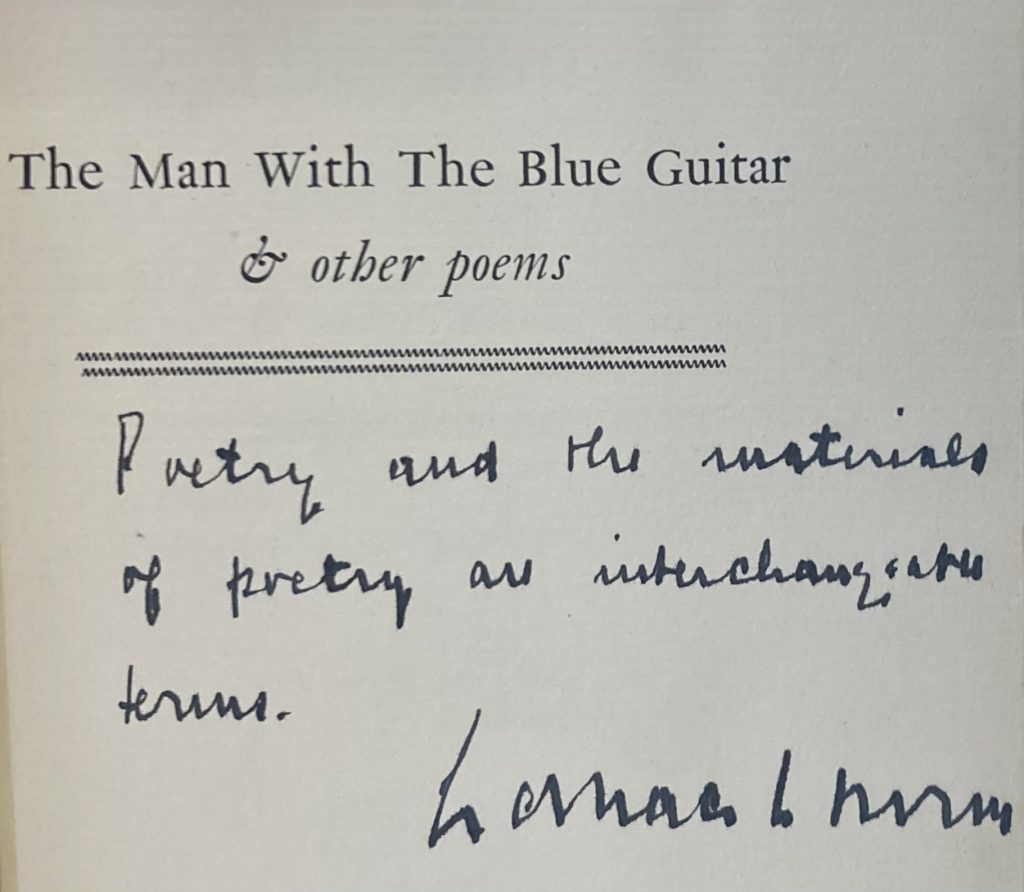 The Man With The Blue Guitar
& other poems
Poetry and the materials
of poetry are interchangeable
terms.